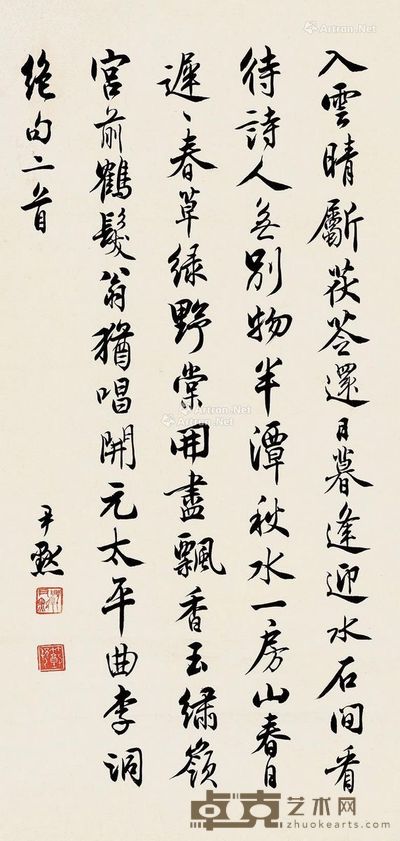 入雲晴斸茯苓還日暮逢迎水石間看
待詩人無別物半潭秋水一房山春日
遲〻春草綠野棠開盡飄香玉繡嶺
宮前鶴髮翁猶唱開元太平曲李洞
絕句二首
尹默
Artron.Net
Artron.Net
Artron.Net
卓克艺术网
zhuokearts.com